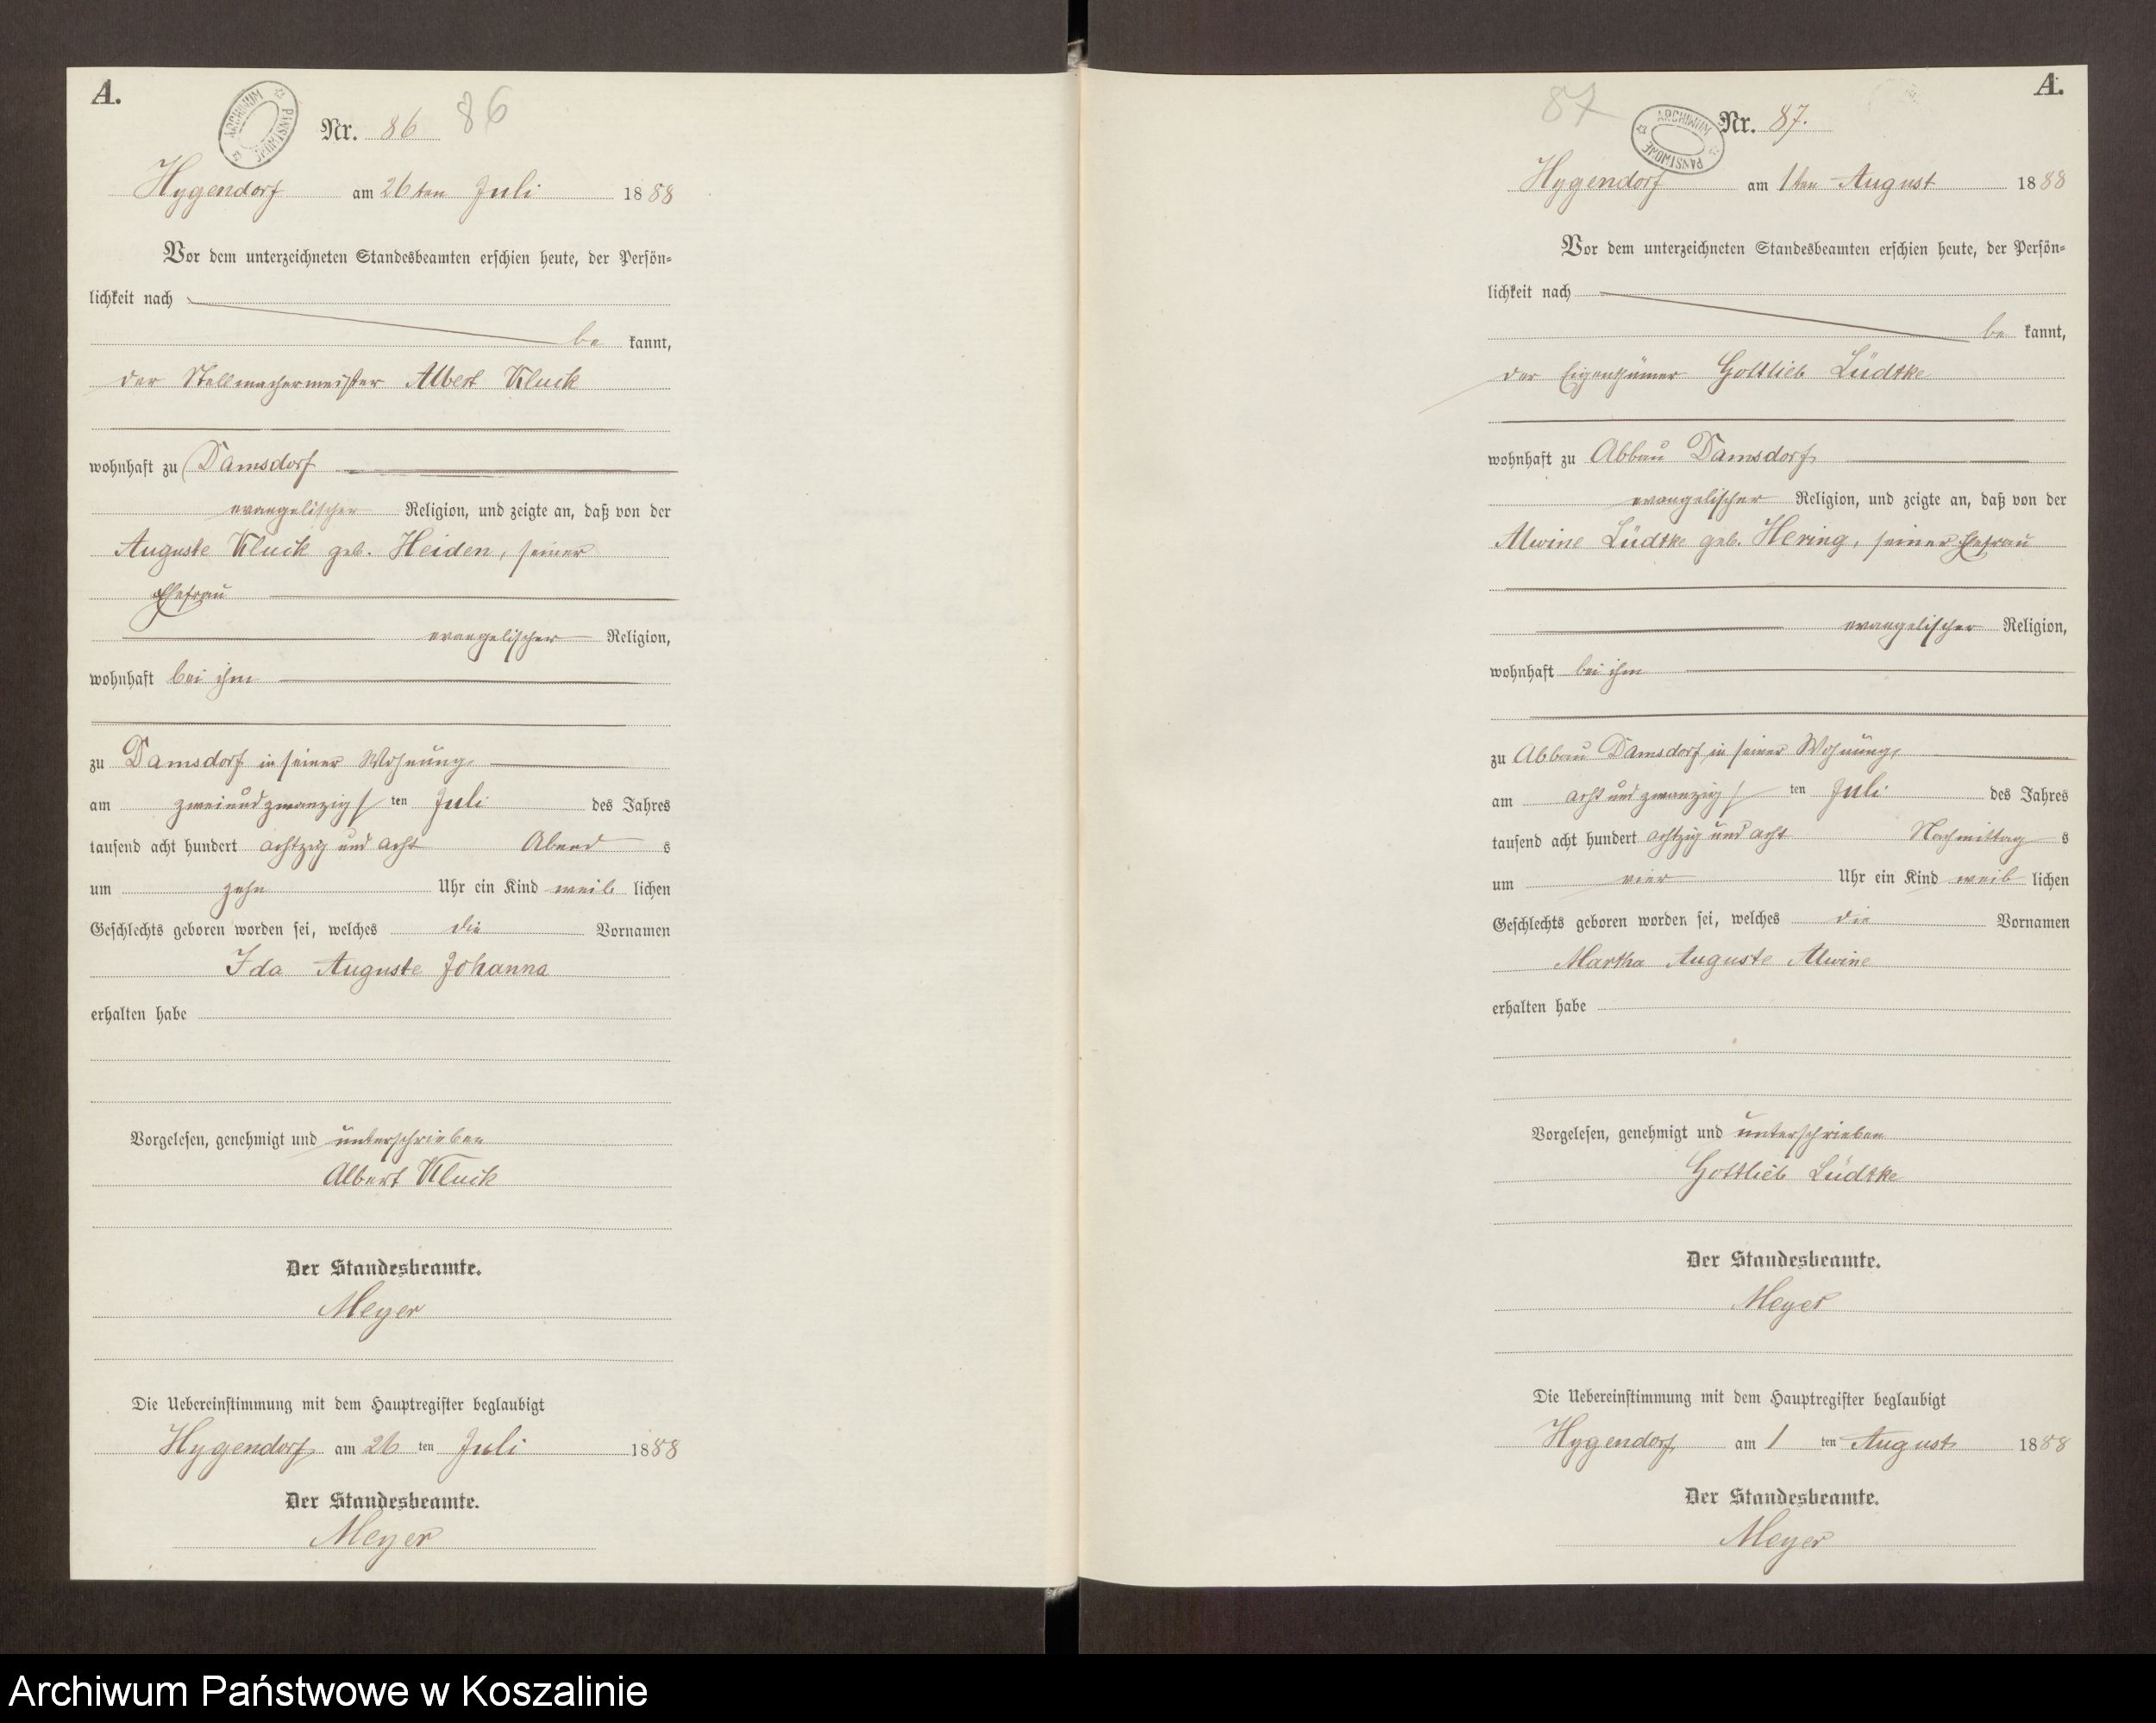 A.
ARCHIWUM PAŃSTWOWE
Nr. 86 86
Hygendorf am 26ten Juli 1888
Vor dem unterzeichneten Standesbeamten erschien heute, der Persön-
lichkeit nach
be kannt,
der Stellmachermeister Albert Kluck
wohnhaft zu Damsdorf
evangelischer Religion, und zeigte an, daß von der
Auguste Kluck geb. Heiden, seiner
Ehefrau
evangelischer Religion,
wohnhaft bei ihm
zu Damsdorf in seiner Wohnung
am zweiundzwanzigs ten Juli des Jahres
tausend acht hundert achtzig und acht Abend s
um zehn Uhr ein Kind weib lichen
Geschlechts geboren worden sei, welches die Vornamen
Ida Auguste Johanna
erhalten habe
Vorgelesen, genehmigt und unterschrieben
Albert Kluck
Der Standesbeamte.
Meyer
Die Uebereinstimmung mit dem Hauptregister beglaubigt
Hygendorf am 26 ten Juli 1888
Der Standesbeamte.
Meyer
A.
87
ARCHIWUM PAŃSTWOWE
Nr. 87.
Hygendorf am 1ten August 1888
Vor dem unterzeichneten Standesbeamten erschien heute, der Persön-
lichkeit nach
be kannt,
der Eigenthümer Gottlieb Lüdtke
wohnhaft zu Abbau Damsdorf
evangelischer Religion, und zeigte an, daß von der
Alwine Lüdtke geb. Hering, seiner Ehefrau
evangelischer Religion,
wohnhaft bei ihm
zu Abbau Damsdorf in seiner Wohnung
am acht und zwanzigs ten Juli des Jahres
tausend acht hundert achtzig und acht Nachmittag s
um vier Uhr ein Kind weib lichen
Geschlechts geboren worden sei, welches die Vornamen
Martha Auguste Alwine
erhalten habe
Vorgelesen, genehmigt und unterschrieben
Gottlieb Lüdtke
Der Standesbeamte.
Meyer
Die Uebereinstimmung mit dem Hauptregister beglaubigt
Hygendorf am 1 ten August 1888
Der Standesbeamte.
Meyer
Archiwum Państwowe w Koszalinie